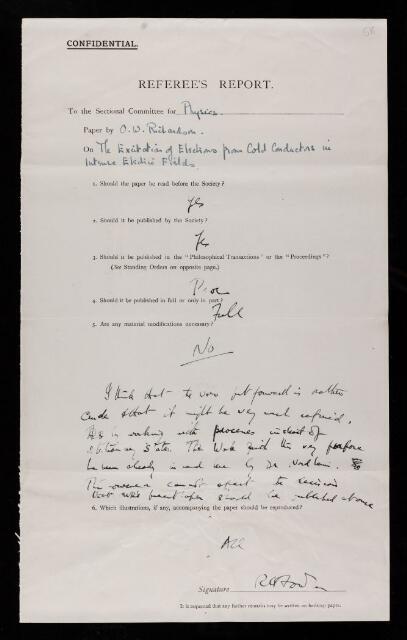 58
CONFIDENTIAL.
REFEREE'S REPORT.
To the Sectional Committee for Physics
Paper by O. W. Richardson.
On The Excitation of Electrons from Cold Conductors in
Intense Electric Fields
1. Should the paper be read before the Society?
Yes
2. Should it be published by the Society?
Yes
3. Should it be published in the "Philosophical Transactions" or the "Proceedings"?
(See Standing Orders on opposite page.)
Proc
4. Should it be published in full or only in part?
Full
5. Are any material modifications necessary?
No
I think that the view put forward is rather
crude & that it might be very much
by working with processes instead of
stationary states. The work for this very purpose
has been already in hand here by Dr. Nordheim.
This however cannot affect the decision
that this present paper should be published at once
6. Which illustrations, if any, accompanying the paper should be reproduced?
All
Signature R H Fowler
It is requested that any further remarks may be written on the